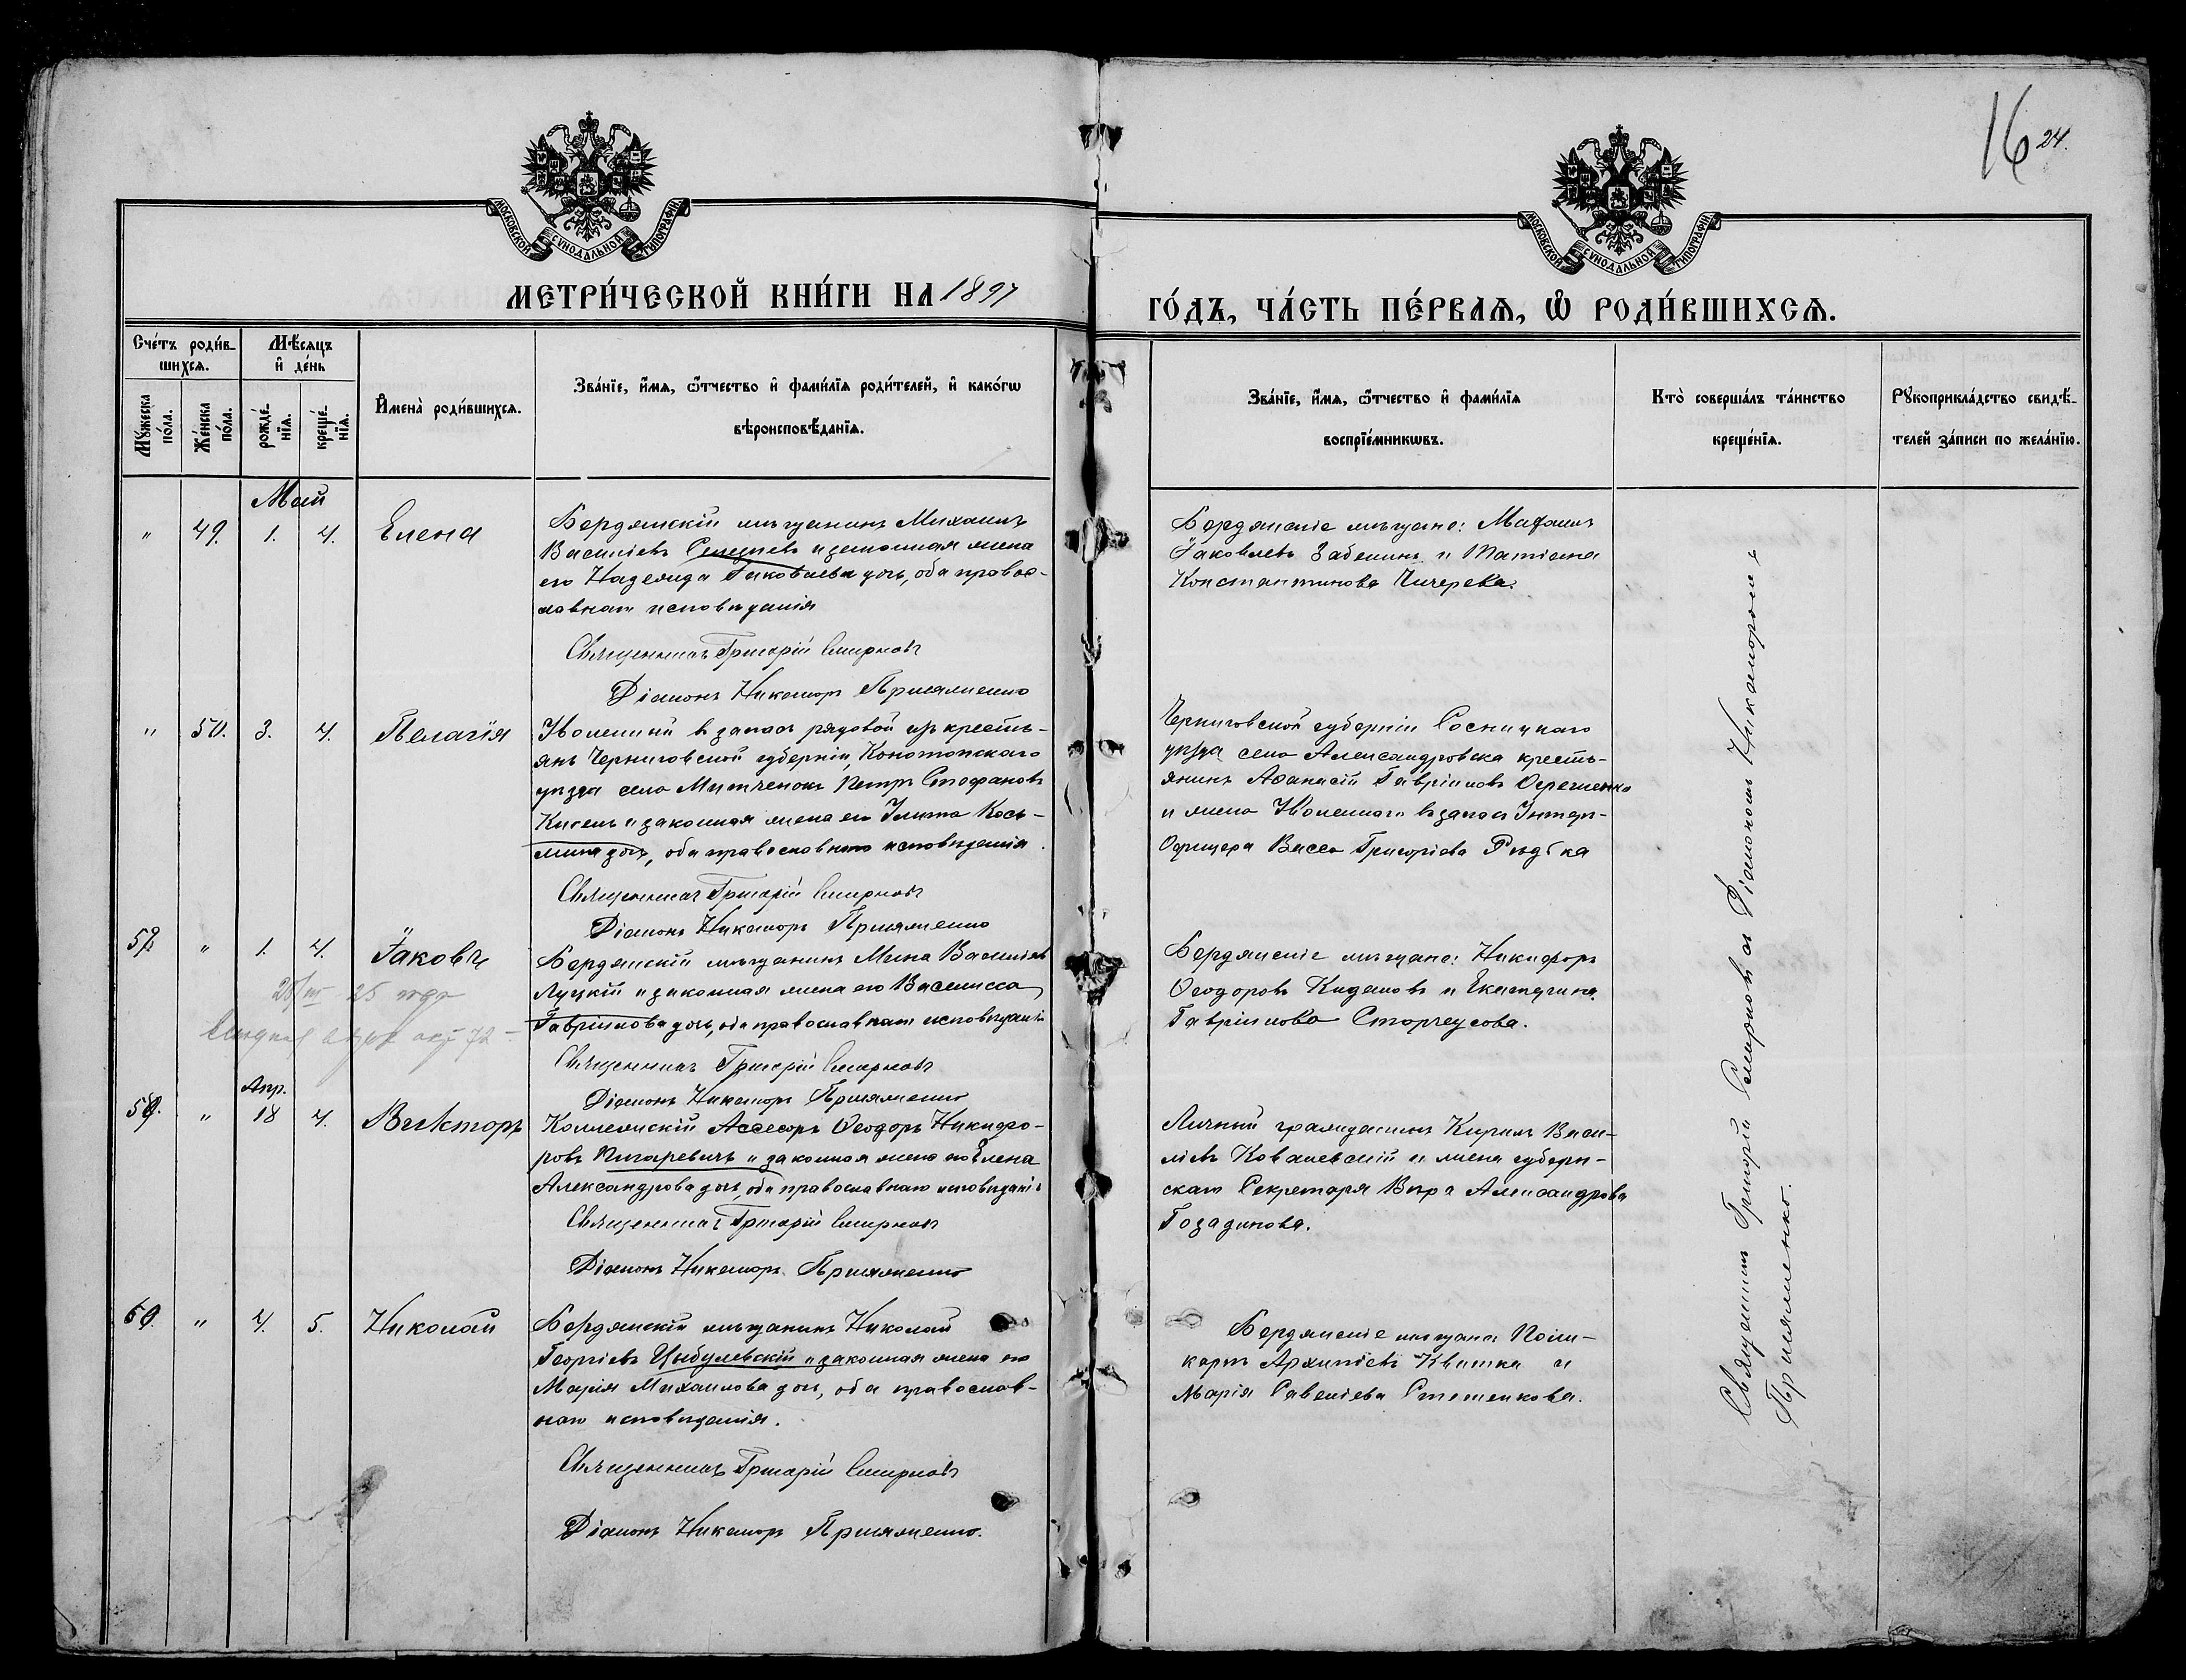 16 24.
МОСКОВСКОЙ СУНОДАЛЬНОЙ ТИПОГРАФІИ
МОСКОВСКОЙ СУНОДАЛЬНОЙ ТИПОГРАФІИ
МЕТРИ́ЧЕСКОЙ КНИ́ГИ НА 1897
ГО́ДЪ, ЧА́СТЬ ПЕ́РВАѦ, Ѡ РОДИ́ВШИХСѦ.
Сче́тъ роди́в-
шихся.
Мѣ́сяцъ
и де́нь
Му́жеска
по́ла.
Же́нска
по́ла.
рожде́-
нїя.
креще́-
нїя.
Имена̀ роди́вшихся.
Зва́нїе, и́мя, ѻ́тчество и фами́лїя роди́телей, и како́гѡ
вѣроисповѣ́данїя.
Зва́нїе, и́мя, ѻ́тчество и фами́лїя
воспрїе́мникѡвъ.
Кто̀ соверша́лъ та́инство
креще́нїя.
Рукоприкла́дство свидѣ́-
телей за́писи по жела́нїю.
Май
" 49. 1. 4. Елена
Бердянскій мѣщанинъ Михаилъ
Василіевъ Селезневъ и законная жена
его Надежда Іаковлева дочь, оба право-
славнаго исповѣданія
Священникъ Григорій Смирновъ
Діаконъ Никаноръ
Бердянскіе мѣщане:
Іаковлевъ Забелинъ и Татіана
Константинова Чичерева.
" 50. 3. 4. Пелагія
Уволенный въ запасъ рядовой изъ кресть-
янъ Черниговской губерніи, Конотопскаго
уѣзда села Митченокъ Петръ Стефановъ
Кисель и законная жена его Косъ-
мина дочь, оба православнаго исповѣданія.
Священникъ Григорій Смирновъ
Діаконъ Никаноръ
Черниговской губерніи Сосницкаго
уѣзда села Александровка кресть-
янинъ Аѳанасій Гавріиловъ
и жена уволеннаго въ запасъ Унтеръ-
Офицера Васса Григоріева Рѣдька
" 1. 4. Іаковъ
Бердянскій мѣщанинъ Мина Василіевъ
Луцкій и законная жена его Василисса
Гавріилова дочь, оба православнаго исповѣданія
Священникъ Григорій Смирновъ
Діаконъ Никаноръ
Бердянскіе мѣщане: Никифоръ
Ѳеодоровъ и Екатерина
Гавріилова Сторчеусова.
Апр.
" 18 4. Викторъ
Коллежскій Ассесоръ Ѳеодоръ Никифо-
ровъ Писаревичъ и законная жена его Елена
Александрова дочь, оба православнаго исповѣданія
Священникъ Григорій Смирновъ
Діаконъ Никаноръ
Личный гражданинъ Кирилъ Васи-
ліевъ Ковалевскій и жена губерн-
скаго Секретаря Вѣра Александрова
Гозадинова.
" 4. 5. Николай
Бердянскій мѣщанинъ Николай
Георгіевъ Цыбулевскій и законная жена его
Марія Михаилова дочь, оба православ-
наго исповѣданія.
Священникъ Григорій Смирновъ
Діаконъ Никаноръ
Бердянскіе мѣщане Поли-
карпъ Архипіевъ Квитка и
Марія Савеліева
Священникъ Григорій Смирновъ съ Діакономъ Никаноромъ